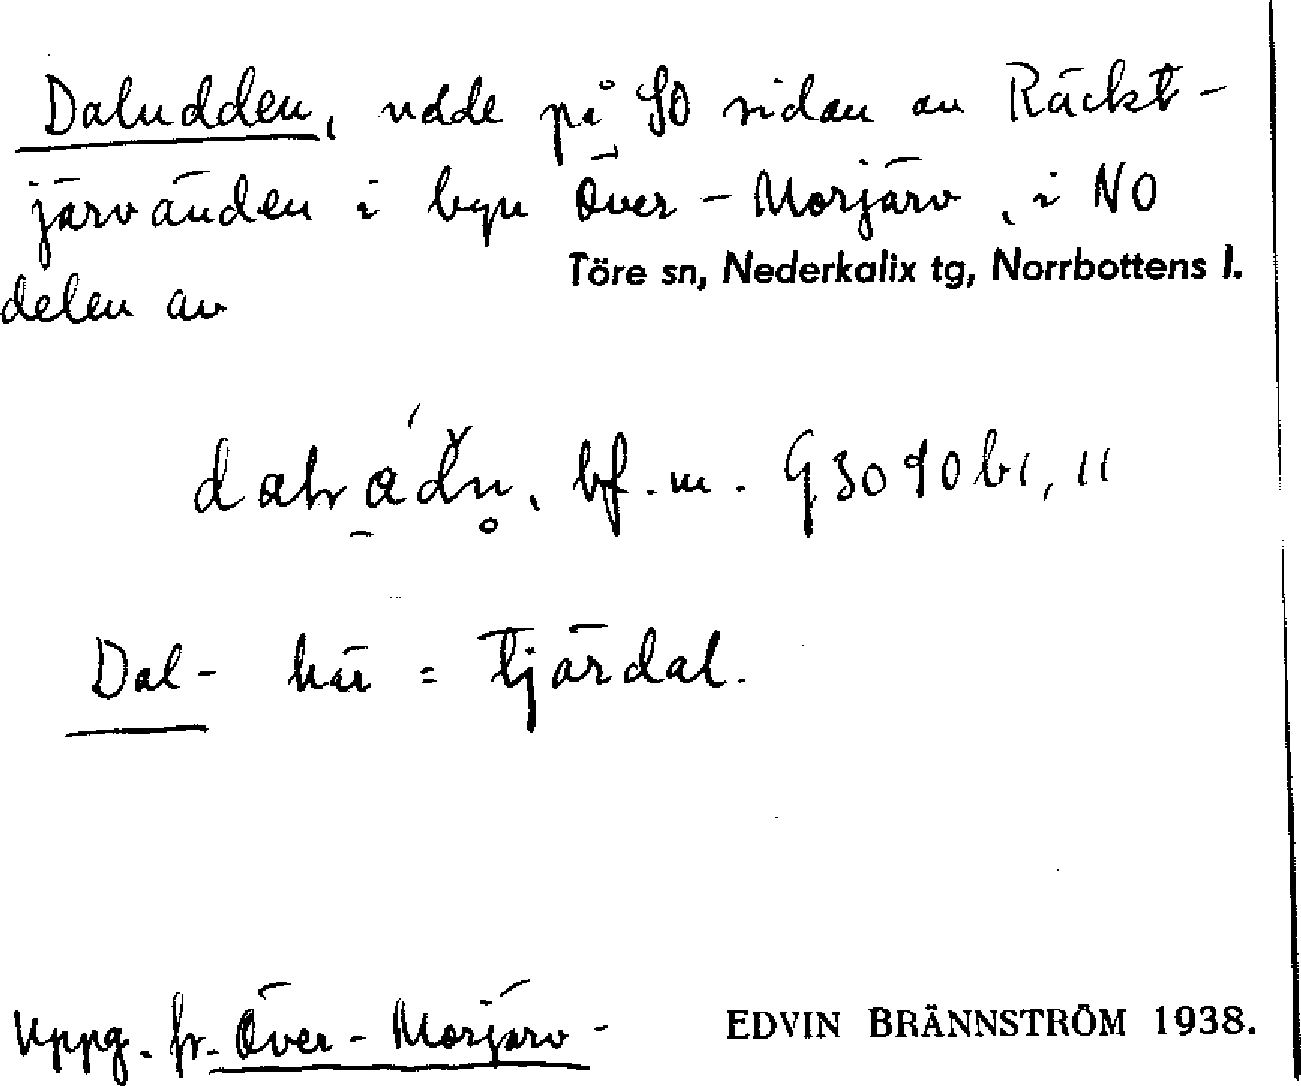 Daludden, udde på SO sidan av Räckt-
järvänden i byn Över-Morjärv, i NO
delen av Töre sn, Nederkalix tg, Norrbottens l.
bf. m.
Dal- här = tjärdal.
Uppg. fr. Över-Morjärv-
EDVIN BRÄNNSTRÖM 1938.